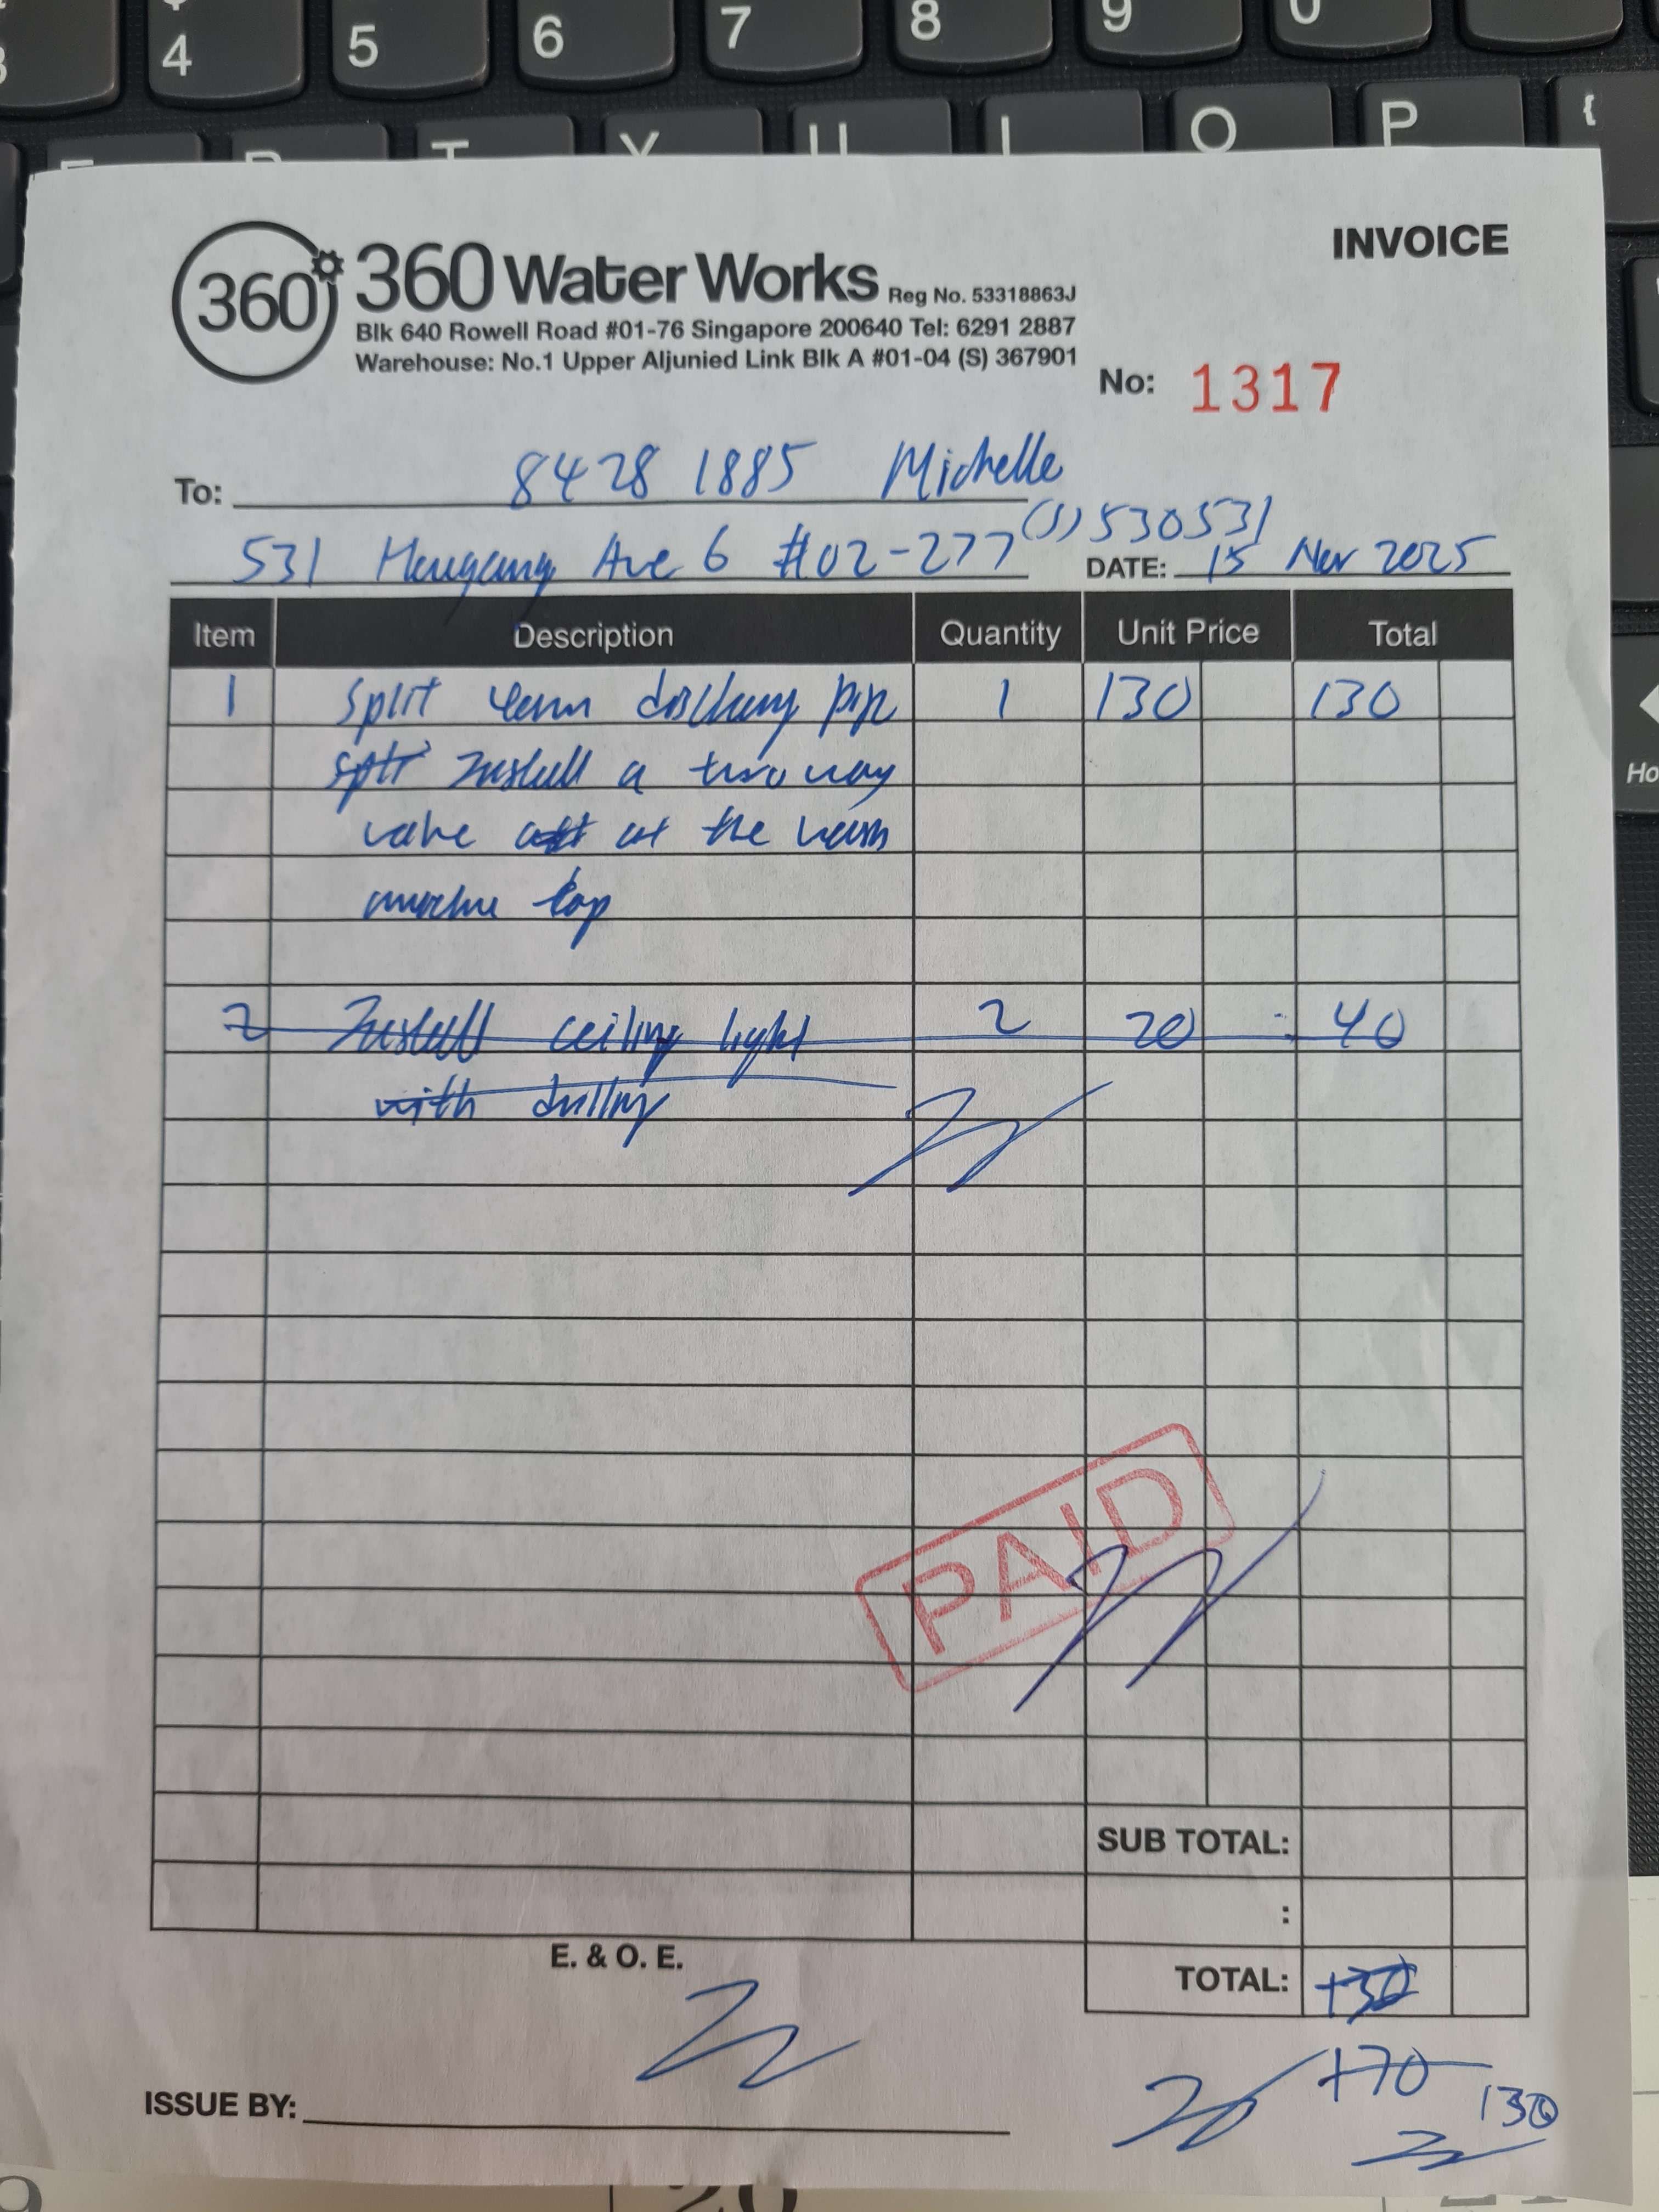 4 5 6 7 8 9 0
T Y U I O P {
INVOICE
360 360 Water Works Reg No. 53318863J
Blk 640 Rowell Road #01-76 Singapore 200640 Tel: 6291 2887
Warehouse: No.1 Upper Aljunied Link Blk A #01-04 (S) 367901
No: 1317
To: 8428 1885 Michelle
531 Hougang Ave 6 #02-277 (S) 530531
DATE: 15 Nov 2025
Item Description Quantity Unit Price Total
1 Split pipe 1 130 130
Install a two way
valve at the
tap
2 Install ceiling light 2 20 40
with drilling
PAID
SUB TOTAL:
:
E. & O. E.
TOTAL: 130
170
130
ISSUE BY:
Ho
20